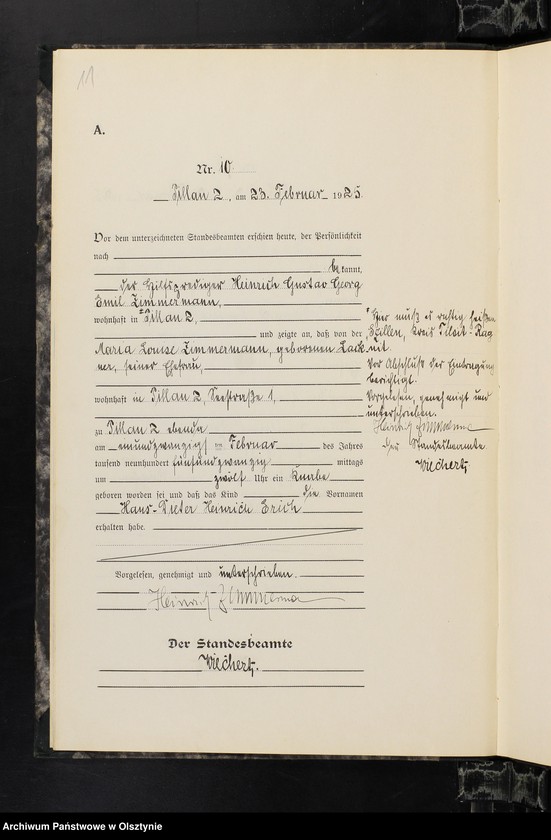 11
A.
Nr. 10
Pillau 2, am 23. Februar 1925.
Vor dem unterzeichneten Standesbeamten erschien heute, der Persönlichkeit
nach
bekannt,
der Hilfsprediger Heinrich Gustav Georg
Emil Zimmermann,
wohnhaft in Pillau 2,
und zeigte an, daß von der
Maria Louise Zimmermann, geborenen Lack
ner, seiner Ehefrau,
wohnhaft in Pillau 2, Seestraße 1,
zu Pillau 2 ebenda
am einundzwanzigsten Februar des Jahres
tausend neunhundert fünfundzwanzig mittags
um zwölf Uhr ein Knabe
geboren worden sei und daß das Kind die Vornamen
Hans-Dieter Heinrich Erich
erhalten habe.
Vorgelesen, genehmigt und unterschrieben.
Heinrich Zimmermann
Der Standesbeamte
Wiechert.
Hier muß es richtig heißen
Kreis Tilsit-Rag
nit
Vor Abschluß der Eintragung
berichtigt.
Vorgelesen, genehmigt und
unterschrieben.
Heinrich Zimmermann
Der Standesbeamte
Wiechert
Archiwum Państwowe w Olsztynie